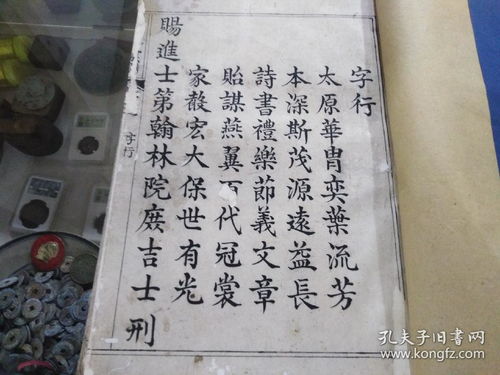 字行
太原華胄奕葉流芳
本深斯茂源遠益長
詩書禮樂節義文章
貽謀燕翼百代冠裳
家敎宏大保世有光
賜進士第翰林院庶吉士刑
字行
孔夫子旧书网
www.kongfz.com